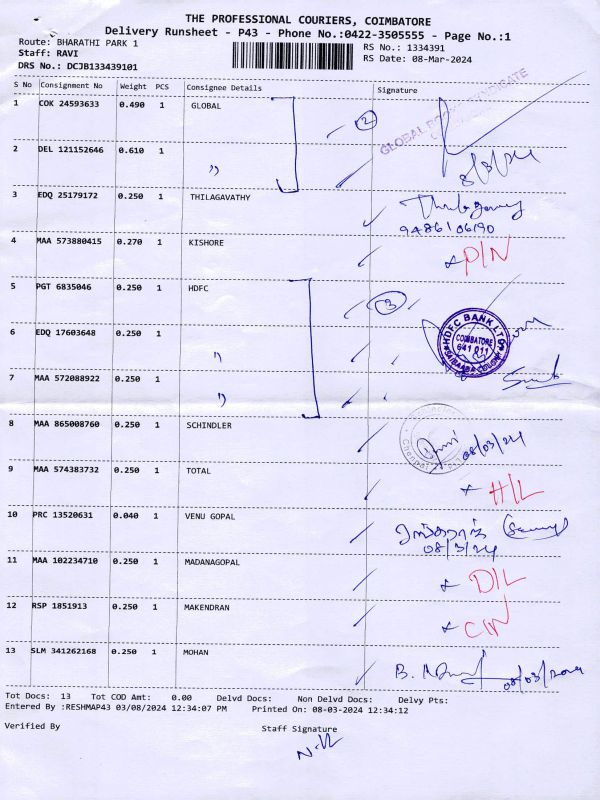 THE PROFESSIONAL COURIERS, COIMBATORE
Delivery Runsheet - P43 - Phone No.:0422-3505555 - Page No.:1
Route: BHARATHI PARK 1 RS No.: 1334391
Staff: RAVI RS Date: 08-Mar-2024
DRS No.: DCJB133439101
S No Consignment No Weight PCS Consignee Details Signature
1 COK 24593633 0.490 1 GLOBAL 2 GLOBAL BOOK SYNDICATE
2 DEL 121152646 0.610 1 " 8/3/24
3 EDQ 25179172 0.250 1 THILAGAVATHY
9486106190
4 MAA 573880415 0.270 1 KISHORE x P/N
5 PGT 6835046 0.250 1 HDFC 3
6 EDQ 17603648 0.250 1 " HDFC BANK LTD COIMBATORE 641 011 SAIBABA COLONY
7 MAA 572088922 0.250 1 "
8 MAA 865008760 0.250 1 SCHINDLER 08/03/24
9 MAA 574383732 0.250 1 TOTAL x H/L
10 PRC 13520631 0.040 1 VENU GOPAL
08/3/24
11 MAA 102234710 0.250 1 MADANAGOPAL x D/L
12 RSP 1851913 0.250 1 MAKENDRAN x C/N
13 SLM 341262168 0.250 1 MOHAN B. 08/03/2024
Tot Docs: 13 Tot COD Amt: 0.00 Delvd Docs: Non Delvd Docs: Delvy Pts:
Entered By :RESHMAP43 03/08/2024 12:34:07 PM Printed On: 08-03-2024 12:34:12
Verified By Staff Signature